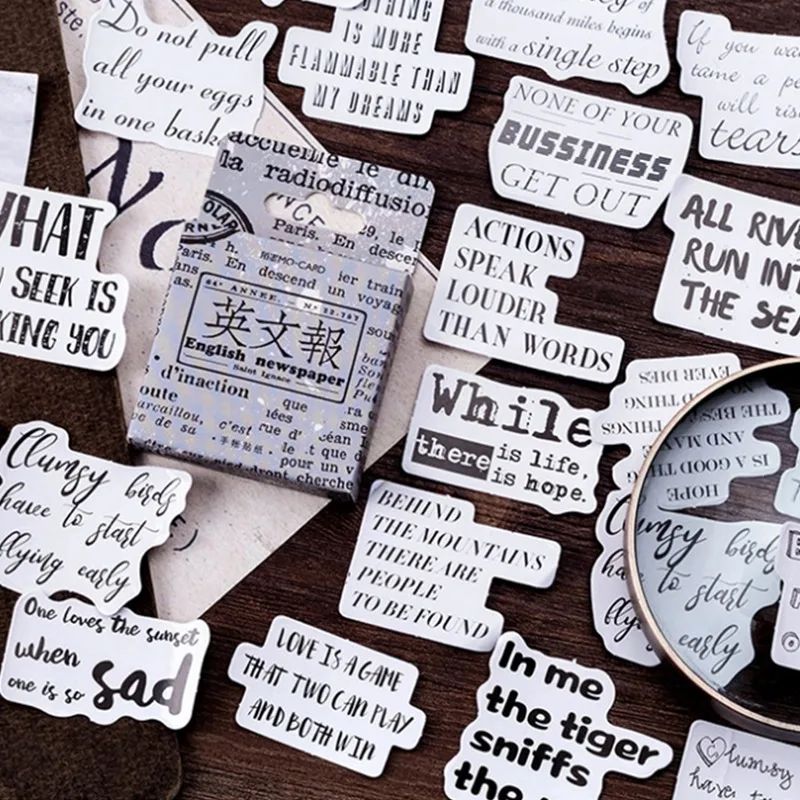 Do not pull
all your eggs
in one bask
IS MORE
FLAMMABLE THAN
MY DREAMS
a thousand miles begins
with a single step
If you
tame a
will
tears
NONE OF YOUR
BUSSINESS
GET OUT
ALL
RUN
THE SEA
ACTIONS
SPEAK
LOUDER
THAN WORDS
WHAT
SEEK IS
KING YOU
accueille le
la radiodiffusio
Paris. En descen
Paris. En descend un voyag
MEMO-CARD
ier train
64e ANNEE. - No 22-757
英文報
English newspaper
Saint Ignace
d'inaction
que
oute
c'est
手帳貼紙
pour un v
dront cherche
While
there is life,
is hope.
EVER DIES
THINGS
THE BES
AND MA
IS A GOOD TH
HOPE
BEHIND
THE MOUNTAINS
THERE ARE
PEOPLE
TO BE FOUND
Clumsy birds
have to start
flying early
Clumsy bird
to start
early
One loves the sunset
when
one is so sad
LOVE IS A GAME
THAT TWO CAN PLAY
AND BOTH WIN
In me
the tiger
sniffs
the
lumsy
have